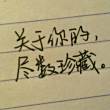 关于你的，
尽数珍藏。